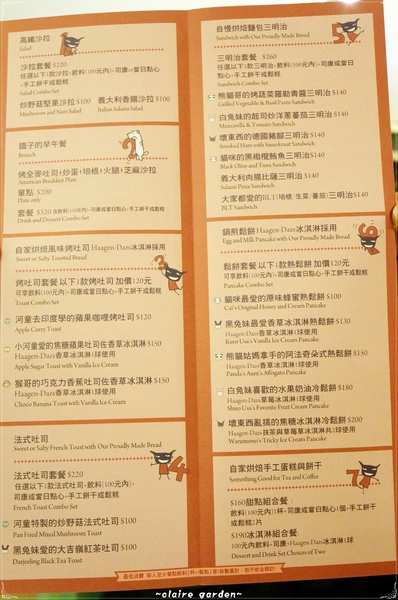 高纖沙拉
Salad
沙拉套餐 $220
任選以下1款沙拉+飲料(100元內)+司康or當日點心
+手工餅干或鬆糕
Salad Combo Set
炒野菇堅果沙拉 $100 義大利香腸沙拉 $100
Mushroom and Nuts Salad Italian Salami Salad
鐵子的早午餐
Brunch
烤全麥吐司+炒蛋+培根+火腿+芝麻沙拉
American Breakfast Plate
單點 $200
Plate only
套餐 $320 含飲料(100元內)+司康or當日點心+手工餅干或鬆糕
Drink and Dessert Combo Set
自家烘焙風味烤吐司 Haagen-Dazs冰淇淋採用
Sweet or Salty Toasted Bread
烤吐司套餐 以下1款烤吐司 加價120元
可享飲料(100元內)+司康或當日點心+手工餅干或鬆糕
Toast Combo Set
河童去印度學的蘋果咖哩烤吐司 $120
Apple Curry Toast
小河童愛的焦糖蘋果吐司佐香草冰淇淋 $150
Haagen-Dazs香草冰淇淋1球使用
Apple Sugar Toast with Vanilla Ice Cream
猴哥的巧克力香蕉吐司佐香草冰淇淋 $150
Haagen-Dazs香草冰淇淋1球使用
Choco Banana Toast with Vanilla Ice Cream
法式吐司
Sweet or Salty French Toast with Our Proudly Made Bread
法式吐司套餐 $220
任選以下1款法式吐司+飲料(100元內)+
司康or當日點心+手工餅干或鬆糕
French Toast Combo Set
河童特製的炒野菇法式吐司 $100
Pan Fried Mixed Mushroom Toast
黑兔妹愛的大吉嶺紅茶吐司 $100
Darjeling Black Tea Toast
自慢烘焙麵包三明治
Sandwich with Our Proudly Made Bread
三明治套餐 $260
任選以下1款三明治+飲料(100元內)+司康or當日點
心+手工餅干或鬆糕
Sandwich Combo Set
熊貓哥的烤蔬菜羅勒青醬三明治 $140
Grilled Vegetable & Basil Pasto Sandwich
白兔妹的起司炒洋蔥蕃茄三明治 $140
Mozzarella & Tomato Sandwich
壞東西的德國豬腳三明治 $140
Smoked Ham with Sauerkraut Sandwich
貓咪的黑橄欖鮪魚三明治 $140
Black Olive and Tuna Sandwich
義大利肉腸比薩三明治 $140
Salami Pizza Sandwich
大家都愛的BLT(培根/生菜/蕃茄)三明治 $140
BLT Sandwich
鍋煎鬆餅 Haagen-Dazs冰淇淋採用
Egg and Milk Pancake with Our Proudly Made Bread
鬆餅套餐 以下1款熱鬆餅 加價120元
可享飲料(100元內)+司康或當日點心+手工餅干或鬆糕
Pancake Combo Set
貓咪最愛的原味蜂蜜熱鬆餅 $100
Cat's Original Honey and Cream Pancake
黑兔妹最愛香草冰淇淋熱鬆餅 $130
Haagen-Dazs香草冰淇淋1球使用
Kuro Usa's Vanilla Ice Cream Pancake
熊貓姑媽拿手的阿法奇朵式熱鬆餅 $150
Haagen-Dazs香草冰淇淋1球使用
Panda's Aunt's Affogato Pancake
白兔妹喜歡的水果奶油冷鬆餅 $180
Haagen-Dazs草莓冰淇淋1球使用
Shiro Usa's Favorite Fruit Cream Pancake
壞東西亂搞的焦糖冰淇淋冷鬆餅 $200
Haagen-Dazs抹茶與草莓草冰淇淋共2球使用
Warumono's Tricky Ice Cream Pancake
自家烘焙手工蛋糕與餅干
Something Good for Tea and Coffee
$160甜點組合餐
飲料(100元內)+司康1個或當日點心1個+手工餅干
或鬆糕2片
$190冰淇淋組合餐
100元內飲料+司康+Haagen-Dazs冰淇淋1球
Dessert and Drink Set Choices of Two
~claire garden~